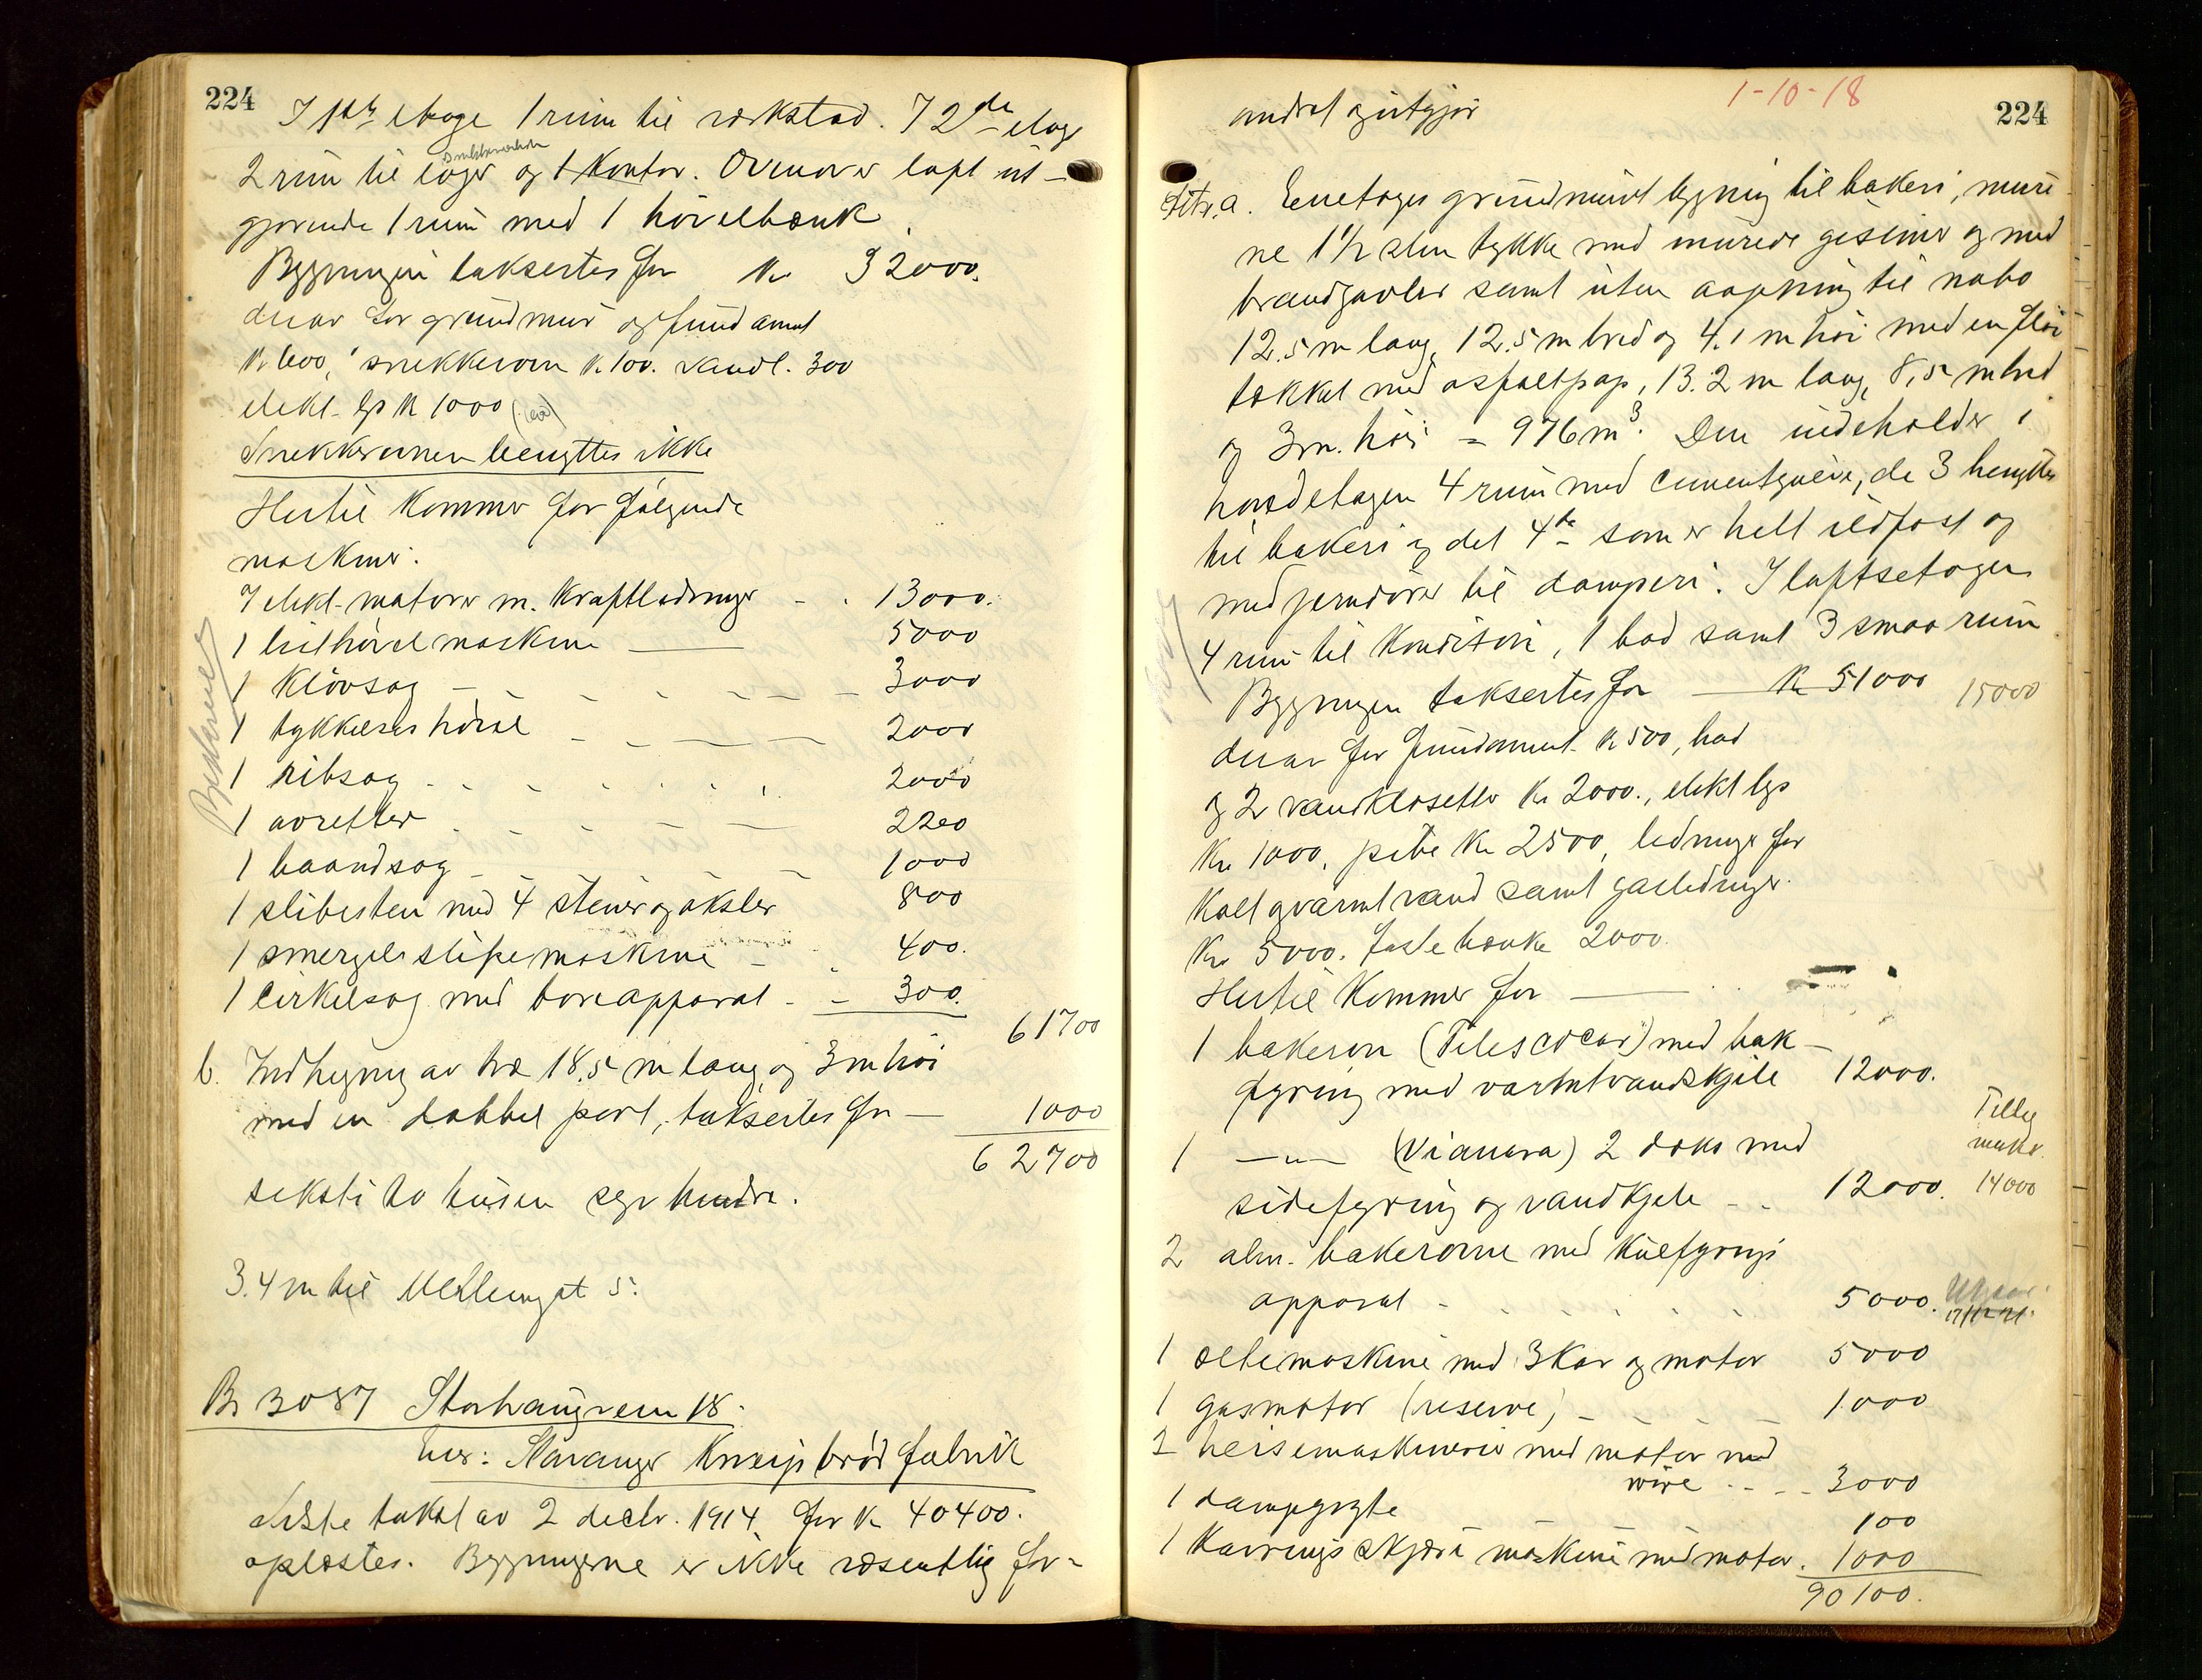 224
I 1ste etage 1 rum til verkstad. I 2den etage
snekkerverksted
2 rum til lager og 1 kontor. Ovenover loft ut-
gjørende 1 rum med 1 høvelbænk.
Bygningen taksertes for kr 32000.
derav for grundmur og fundament
kr 600, snekkerovn k. 100. vandl. 300
elekt. lys kr 1000
Snekkerovnen benyttes ikke
Hertil kommer for følgende
maskiner:
7 elekt. motorer m. kraftledninger - . 13000.
1 listhøvelmaskine 5000
1 kløvsag - - - - 3000
1 tykkelseshøvel - - - 2000
1 ribsag - - - 2000
1 avretter - - - 2200
1 baandsag - - 1000
1 slibesten med 4 stener og aksler 800
1 smergelslipemaskine - . 400.
1 cirkelsag med boreapparat - - 300.
61700
b. Indhegning av træ 18.5 m lang og 3 m høi
med en dobbel port, taksertes for - 1000
62700
seksti to tusen syv hundre.
3.4 m til Mellemgat 5.
Br 3087 Storhaugveien 18.
Eier: Stavanger Kneipbrød fabrik
Siste takst av 2 decbr. 1914 for kr 40400.
oplæstes. Bygningerne er ikke væsentlig for-
1-10-18
224
andret og utgjør
Litr. a. Enetages grundmuret bygning til bakeri, mure
ne 1 1/2 sten tykke med murede gesimser og med
brandgavler samt uten aapning til nabo
12.5 m lang, 12.5 m bred og 4.1 m høi med en fløi
tækket med asfaltpap, 13.2 m lang, 8,5 m bred
og 3 m. høi = 976 m3. Den indeholder i
hovedetagen 4 rum med cementgulve, de 3 benyttes
til bakeri og det 4de som er helt ildfast og
med jerndører til damperi. I loftsetagen
4 rum til konditori, 1 bad samt 3 smaa rum
Bygningen taksertes for - kr 51000 15000
derav for fundament kr 500, bad
og 2 vandklosetter kr 2000., elekt lys
kr 1000, pibe kr 2500, ledninger for
kolt og varmt vand samt gasledninger.
kr 5000. faste bænke 2000.
Hertil kommer for
1 bakerovn (Telescocar) med bak-
fyring med varmtvandskjele 12000.
Tillæg
1 -"- (Vianara) 2 doks med
sidefyring og vandkjele - - 12000. 14000
2 alm. bakerovne med kulfyrings
apparat - - - - 5000. Utgaar
17/12 21.
1 æltemaskine med 3 kar og motor 5000
1 gasmotor (reserve) - - - 1000
1 heisemaskineri med motor med
wire - - - 3000
1 dampgryte 100
1 kavringsskjære maskine med motor. 1000
90100.